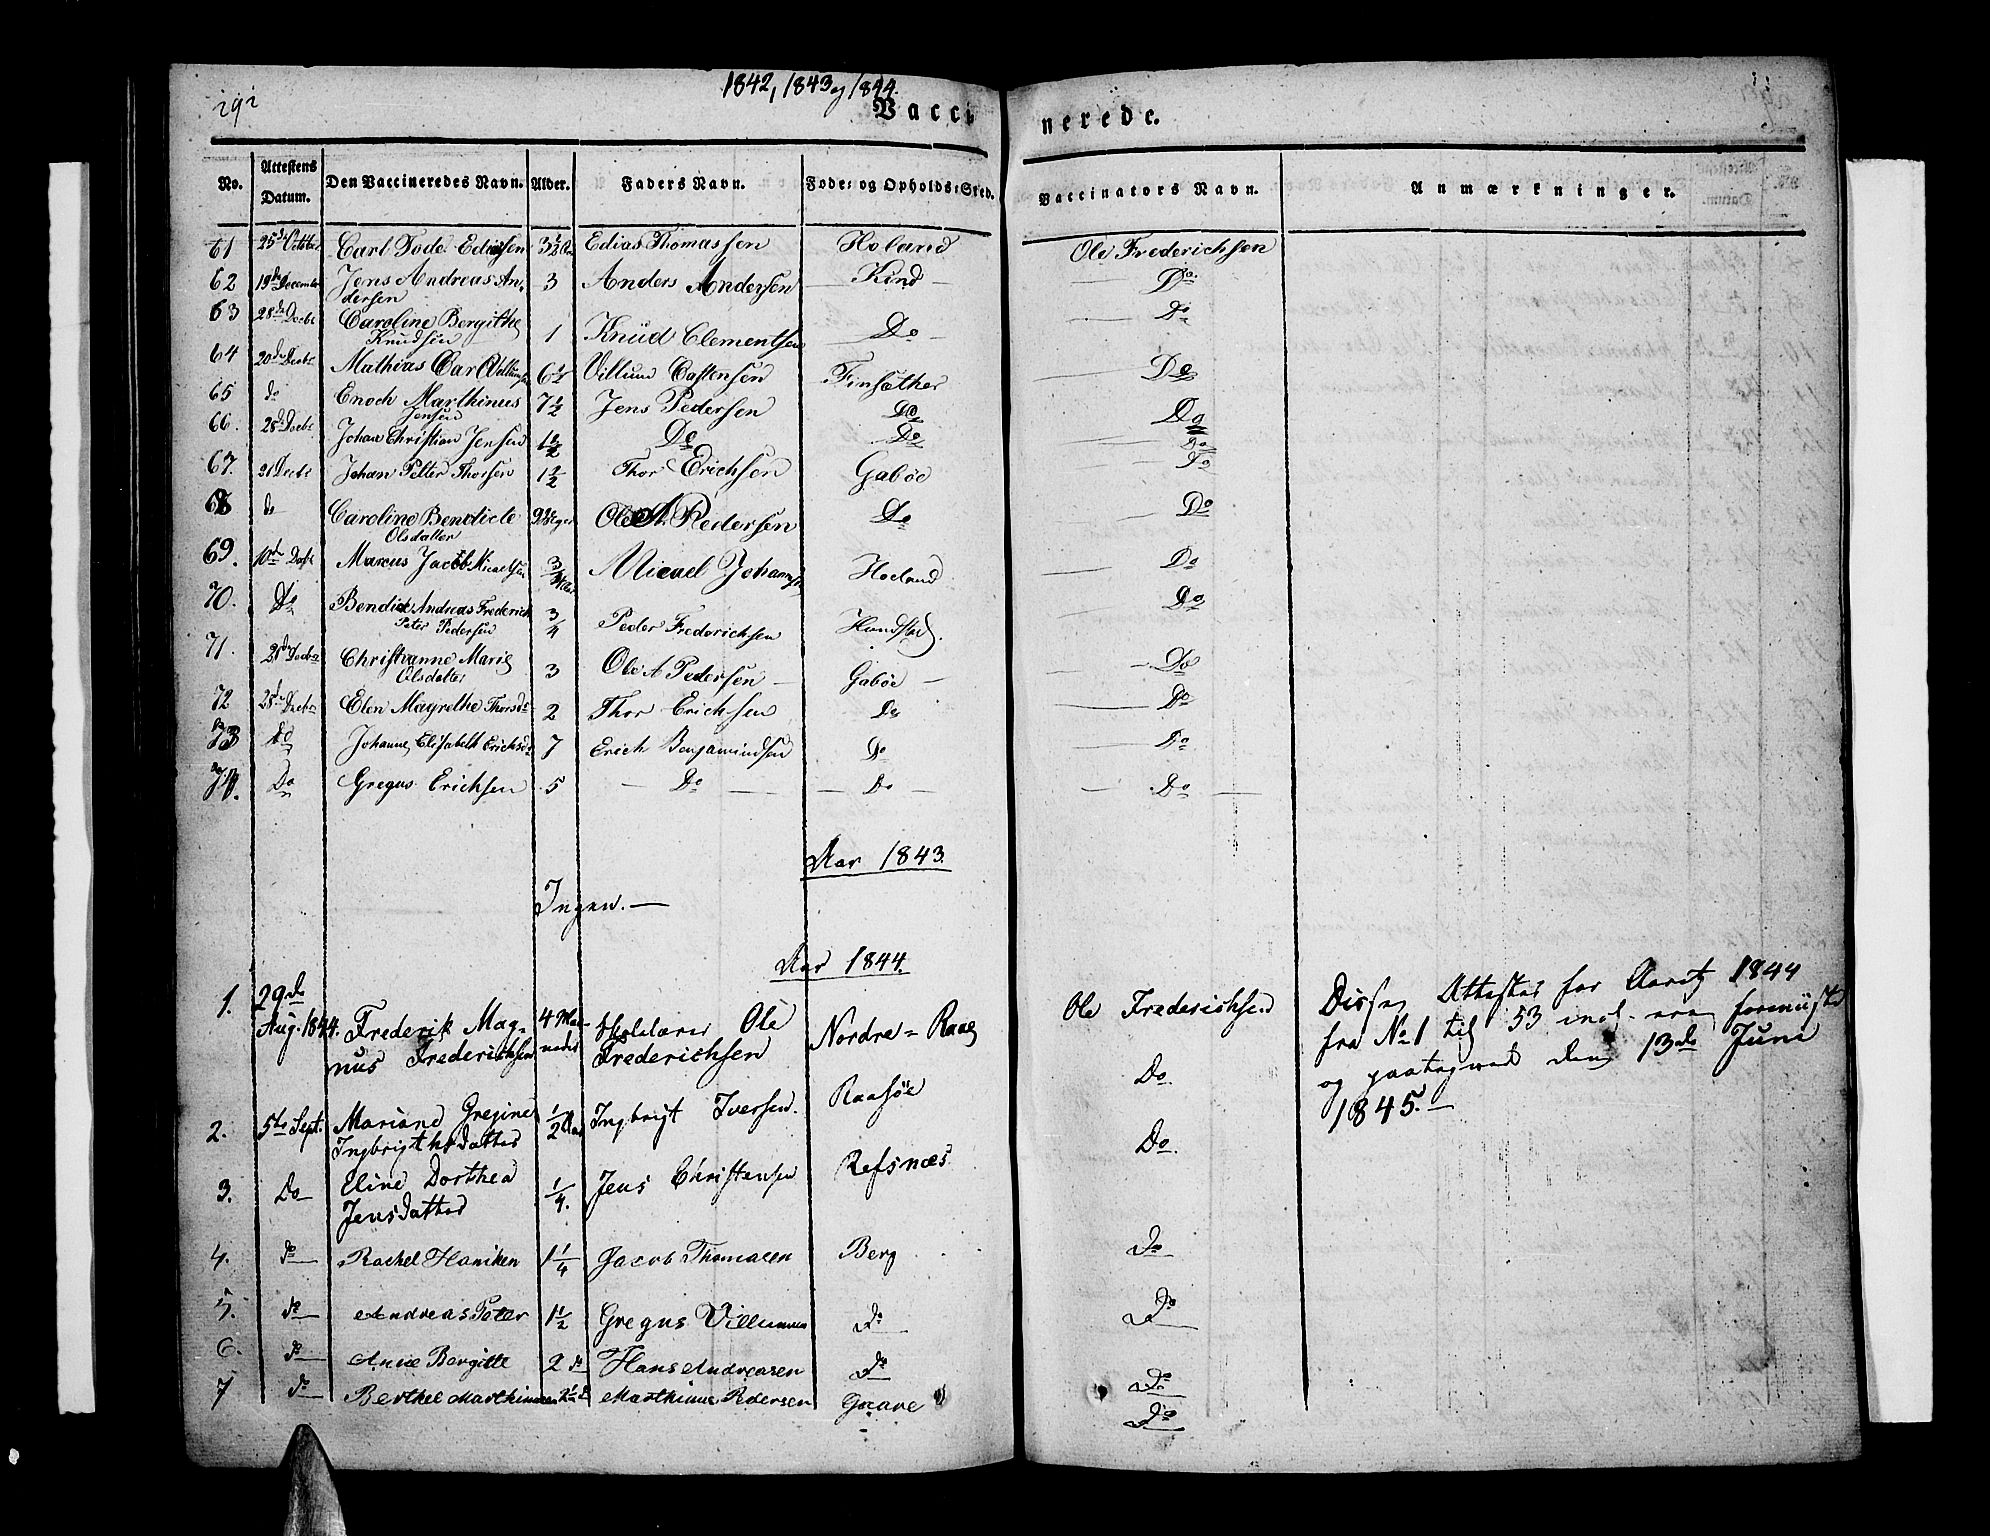 292
1842, 1843 og 1844.
Vaccinerede.
No. Attestens Datum. Den Vaccineredes Navn. Alder. Faders Navn. Føde- og Opholds-Sted. Vaccinators Navn. Anmærkninger.
61 25de October Carl Tode Ediassen 3 1/2 Edias Thomassen Holand Ole Frederichsen
62 19de December Jens Andreas An-
dersen 3 Anders Andersen Kind Do
63 28de Decbr Caroline Bergithe
Knudsen 1 Knüd Clementsen Do Do
64 20de Decbr Mathias Carl Villumsen 6 1/2 Villum Castensen Finsæther Do
65 do Enoch Marthinus
Jensen 7 1/2 Jens Pedersen Do Do
66. 28de Decbr Johan Christian Jensen 1 1/2 Do Do Do
67. 21 Decbr Johan Peter Thorsen 1 1/2 Thor Erichsen Gabøe Do
68 do Caroline Bendicte
Olsdatter Ole A. Pedersen Do Do
69. 10de Decbr Marcus Jacob Micaelsen 3/4 Micael Johannsen Hoeland Do
70. Do Bendick Andreas Frederich
Peter Pedersen 3/4 Peder Frederichsen Hundstad. Do
71. 21de Decbr Christianne Marie
Olsdatter 3 Ole A Pedersen Gabøe Do
72 28de Decbr Elen Magrethe Thorsdr 2 Thor Erichsen Do Do
73 Do Johanne Elisabeth Erichsdr 7 Erich Benjamindsen Do Do
74. Do Gregus Erichsen 5 Do Do Do
Aar 1843.
Ingen. —
Aar 1844.
1. 29de
Aug. 1844. Frederik Mag-
nus Frederichsen 4 Maa-
neder Skolelærer Ole
Frederichsen Nordre = Raae Ole Frederichsen
Disse Attester for Aaret 1844
fra No 1 til 53 incl.
og den 13de Juni
1845. —
Do.
2. 5te Sept. Mariane Gregine
Ingbrigthsdatter 1/2 Aar Ingbrigt Iversen. Raasøe Do.
3. Do Eline Dorthea
Jensdatter 1/4. Jens Christensen Refsnæs
4. do Rachel Haniken 1 1/4 Jacob Thomasen Berg Do
5. do Andreas Peter 1 1/2 Gregus Villumsen Do Do
6. do Anne Bergitte 2 do Hans Andreasen Do Do
7 do Berthel Marthinusen 2 1/2 do Marthinus Pedersen Graave Do